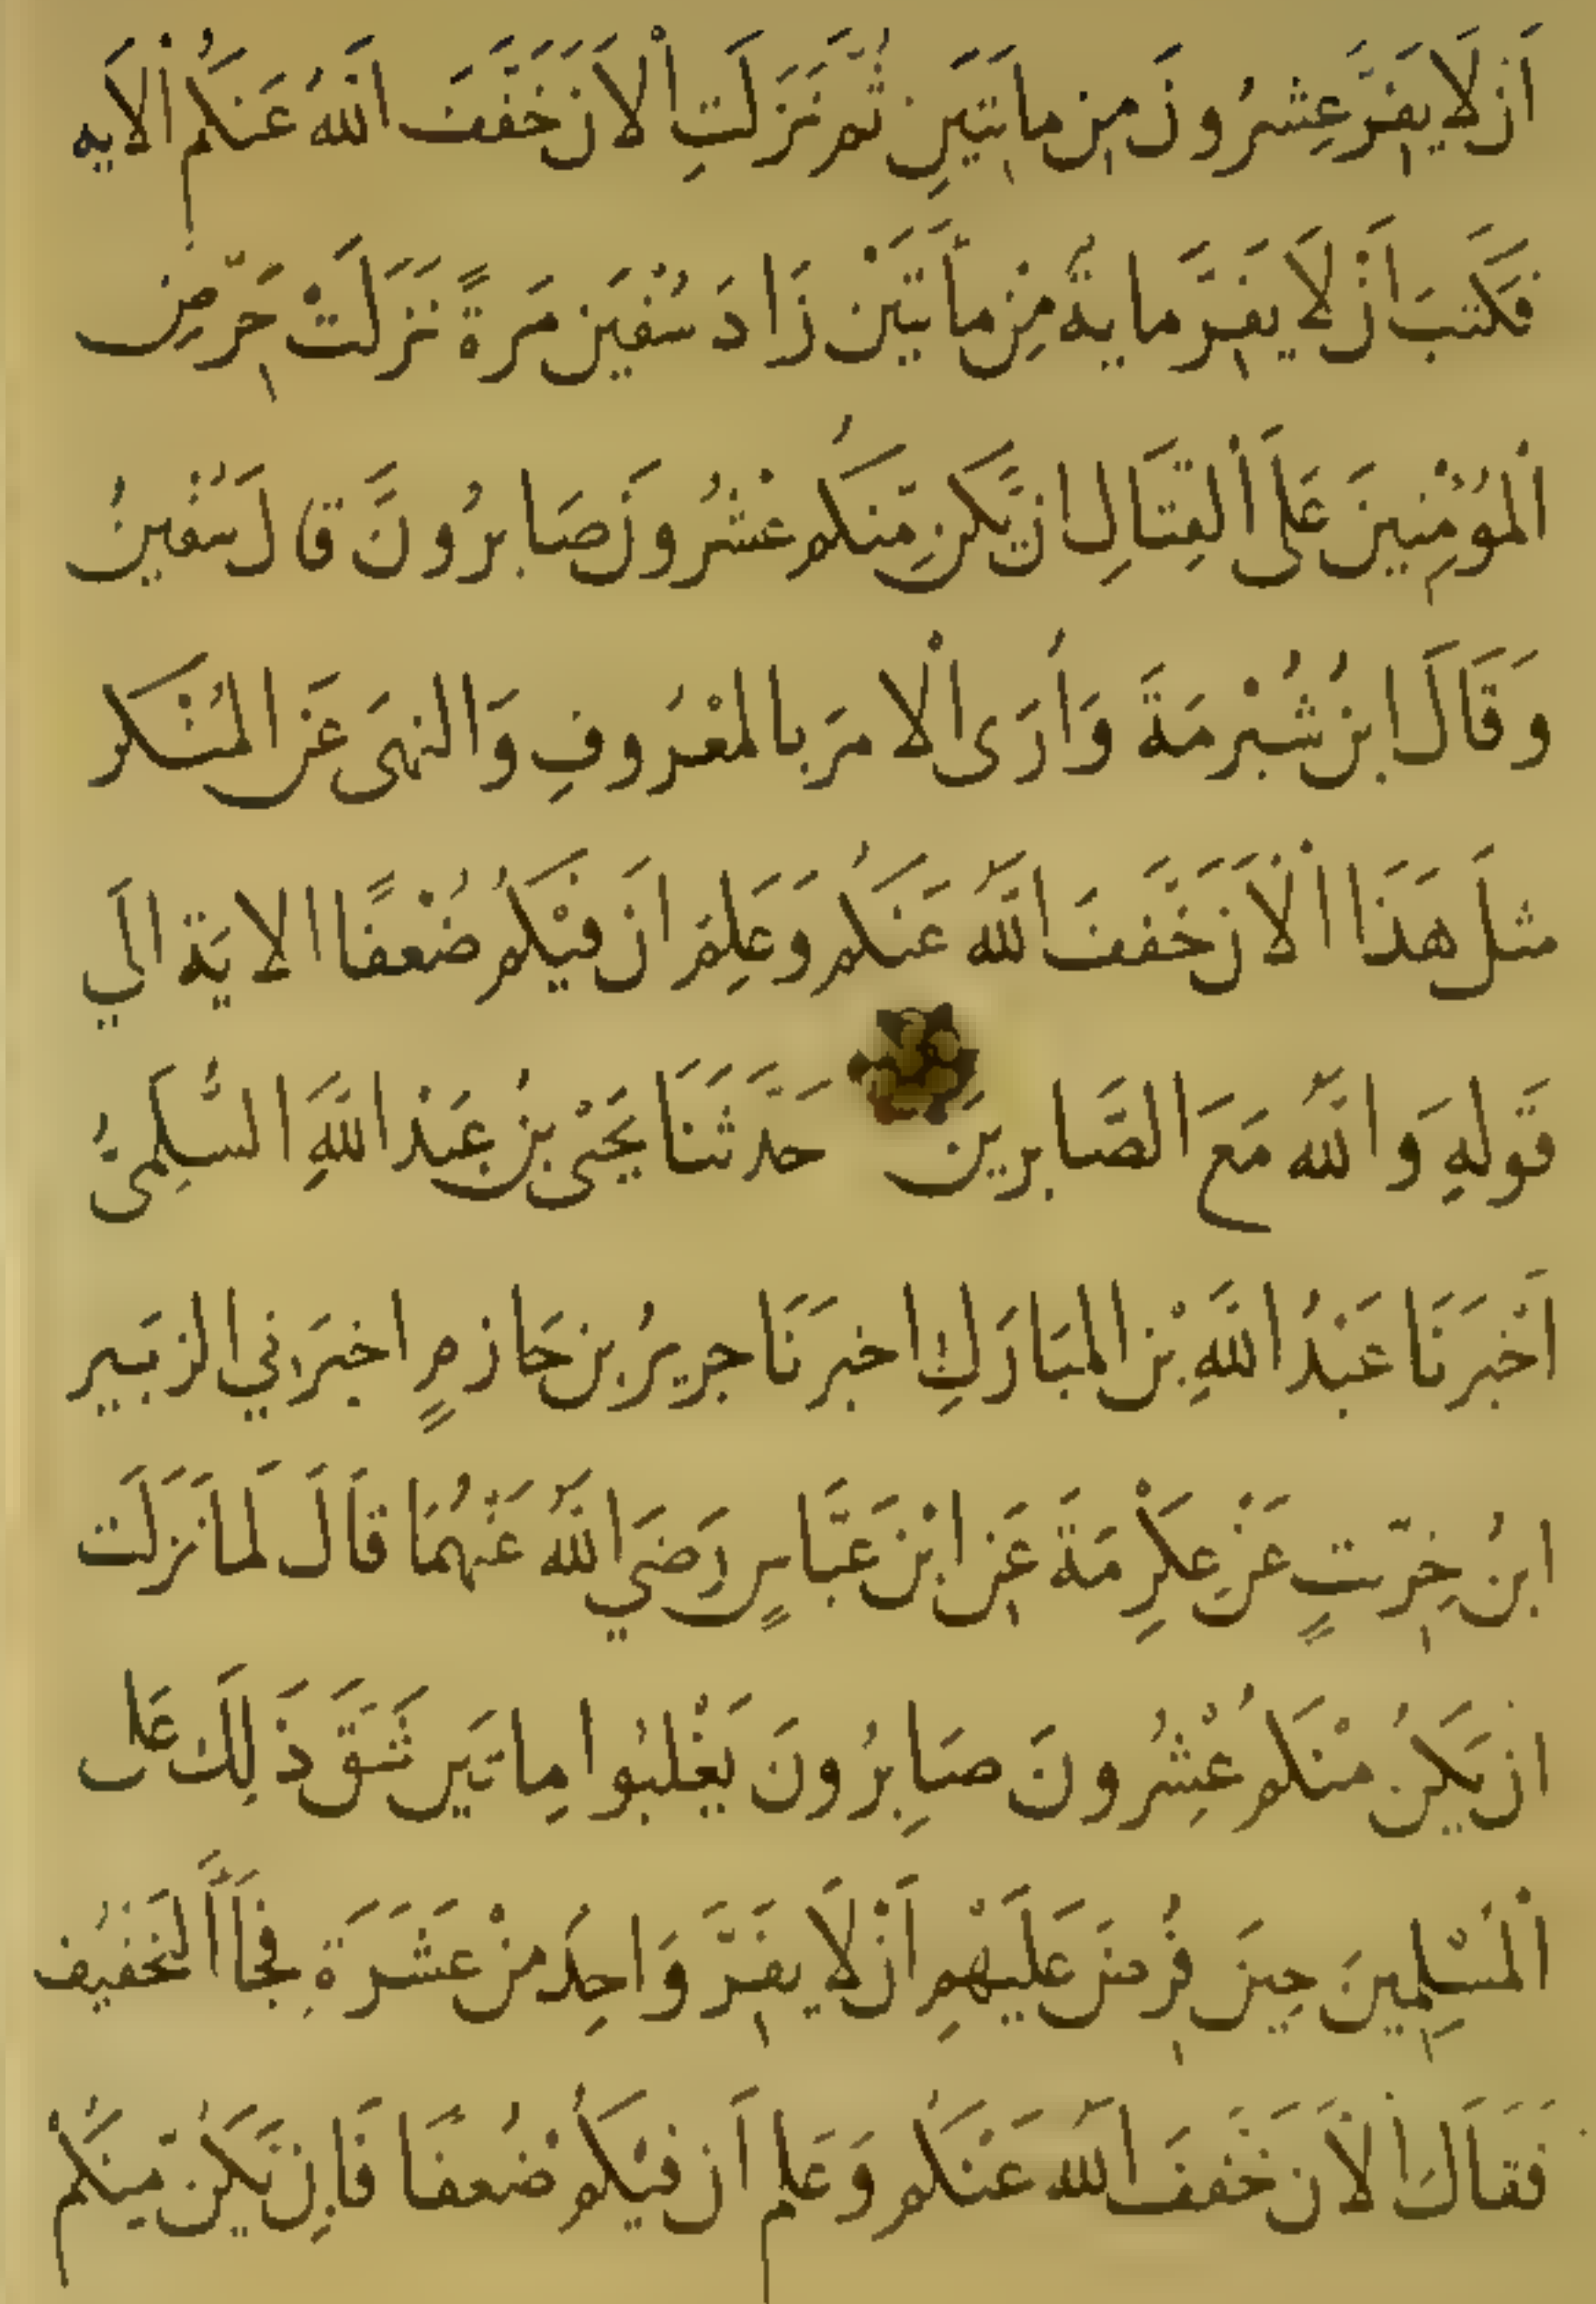 اَن لَا يَفِرَّ عِشرُونَ مِن مِايَتَيَنِ ثُمَّ نَزَلَتِ اْلاَنَ خَفَّفَ اَللهُ عَنَكُم اْلاَيه
فَكَتبَ اَنْ لاَ يَفِرَّ مايةٌ مِنْ مأَتَيَنْ زَادَ سُفيَن مَرةً نَزَلَتْ حَرِّضِ
اْلمُؤمِنِينَ عَلَى اْلقِتَالِ ان يَّكُنِ مِّنكُم عْشُرونَ صَابرُونَ قَالَ سُفْينُ
وَقَالَ ابنُ شُبْرمَةَ وَأُرَى اْلامَرَ بالمعْرَوفِ وَالنهىَ عَن المنْكر
مثلَ هَذَا اْلاَنَ خَفَّفَ اللهُ عَنَكُم وَعَلِمَ اَنَ فيْكُم ضُعْفًا الايَة اليَ
قَولهِ وَاللهُ مَعَ الصَّابرينَ حَدَّثَنَا يَحَيْى بنُ عَبْد اللهِ السُّلَمِىُّ
اَخْبَرنَا عَبْدُ اللهِ بْن المبَارَكِ اخبَرنَا جريرُ بن حَازمٍ اخبَرَني الزبَير
ابنُ خِرِّيتٍ عَنْ عِكْرِمَةَ عَنِ ابْن عَبَّاسٍ رَضَي اللهُ عَنْهُمَا قاَلَ لَمانَزَلَت
ان يَكُنْ منْكُم عْشِرُونَ صَابِرُونَ يَغْلبُوا مِاتَيَن شَقَّ ذَلِكَ عَلى
اْلمُسْلِمِينَ حِينَ فُرِضَ عَلَيْهِم اَنْ لاَ يفِرَّ وَاحِدُ منْ عَشَرَةٍ فجَاأَ التَخفيُف
فَقاَلَ اْلاَن خَفَّفَ اللهُ عَنْكُم وَعَلم اَن فيْكُم ضُعفًا فَاِن يَّكُن مّنكُمْ